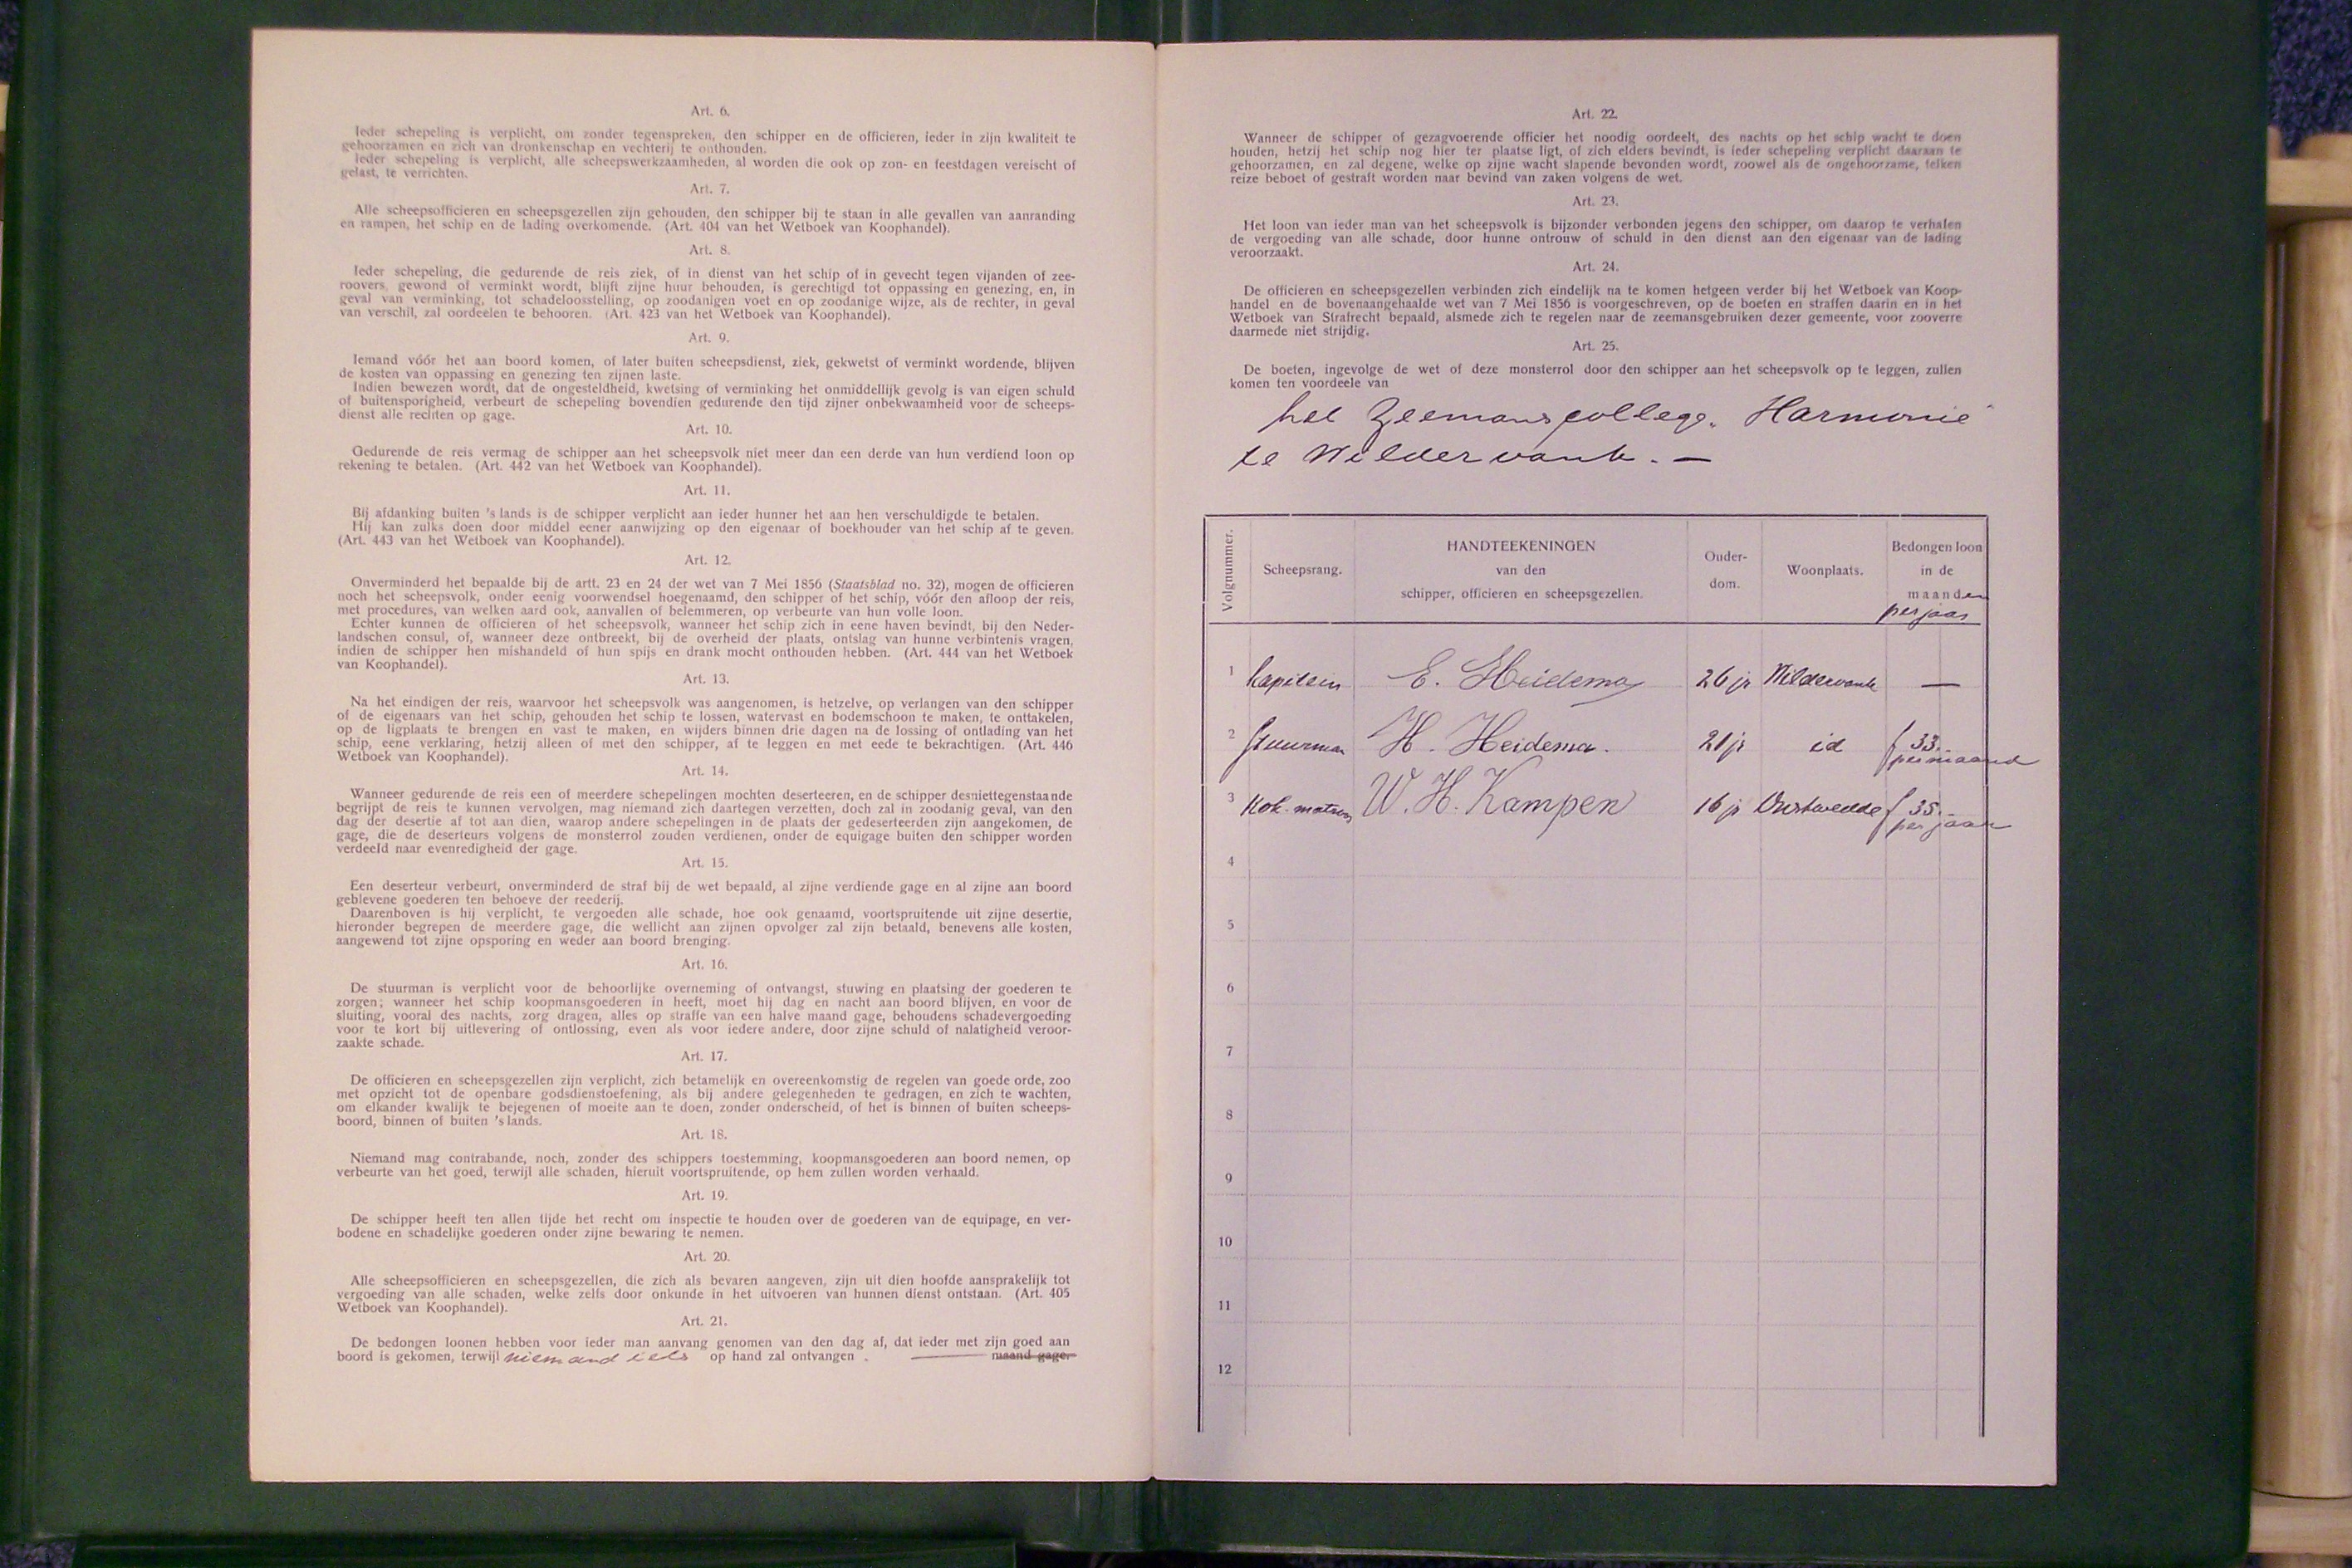 Art. 6.
Ieder schepeling is verplicht, om zonder tegenspreken, den schipper en de officieren, ieder in zijn kwaliteit te
gehoorzamen en zich van dronkenschap en vechterij te onthouden.
Ieder schepeling is verplicht, alle scheepswerkzaamheden, al worden die ook op zon- en feestdagen vereischt of
gelast, te verrichten.
Art. 7.
Alle scheepsofficieren en scheepsgezellen zijn gehouden, den schipper bij te staan in alle gevallen van aanranding
en rampen, het schip en de lading overkomende. (Art. 404 van het Wetboek van Koophandel).
Art. 8.
Ieder schepeling, die gedurende de reis ziek, of in dienst van het schip of in gevecht tegen vijanden of zee-
roovers, gewond of verminkt wordt, blijft zijne huur behouden, is gerechtigd tot oppassing en genezing, en, in
geval van verminking, tot schadeloosstelling, op zoodanigen voet en op zoodanige wijze, als de rechter, in geval
van verschil, zal oordeelen te behooren. (Art. 423 van het Wetboek van Koophandel).
Art. 9.
Iemand vóór het aan boord komen, of later buiten scheepsdienst, ziek, gekwetst of verminkt wordende, blijven
de kosten van oppassing en genezing ten zijnen laste.
Indien bewezen wordt, dat de ongesteldheid, kwetsing of verminking het onmiddellijk gevolg is van eigen schuld
of buitensporigheid, verbeurt de schepeling bovendien gedurende den tijd zijner onbekwaamheid voor de scheeps-
dienst alle rechten op gage.
Art. 10.
Gedurende de reis vermag de schipper aan het scheepsvolk niet meer dan een derde van hun verdiend loon op
rekening te betalen. (Art. 442 van het Wetboek van Koophandel).
Art. 11.
Bij afdanking buiten 's lands is de schipper verplicht aan ieder hunner het aan hen verschuldigde te betalen.
Hij kan zulks doen door middel eener aanwijzing op den eigenaar of boekhouder van het schip af te geven.
(Art. 443 van het Wetboek van Koophandel).
Art. 12.
Onverminderd het bepaalde bij de artt. 23 en 24 der wet van 7 Mei 1856 (Staatsblad no. 32), mogen de officieren
noch het scheepsvolk, onder eenig voorwendsel hoegenaamd, den schipper of het schip, vóór den afloop der reis,
met procedures, van welken aard ook, aanvallen of belemmeren, op verbeurte van hun volle loon.
Echter kunnen de officieren of het scheepsvolk, wanneer het schip zich in eene haven bevindt, bij den Neder-
landschen consul, of, wanneer deze ontbreekt, bij de overheid der plaats, ontslag van hunne verbintenis vragen,
indien de schipper hen mishandeld of hun spijs en drank mocht onthouden hebben. (Art. 444 van het Wetboek
van Koophandel).
Art. 13.
Na het eindigen der reis, waarvoor het scheepsvolk was aangenomen, is hetzelve, op verlangen van den schipper
of de eigenaars van het schip, gehouden het schip te lossen, watervast en bodemschoon te maken, te onttakelen,
op de ligplaats te brengen en vast te maken, en wijders binnen drie dagen na de lossing of ontlading van het
schip, eene verklaring, hetzij alleen of met den schipper, af te leggen en met eede te bekrachtigen. (Art. 446
Wetboek van Koophandel).
Art. 14.
Wanneer gedurende de reis een of meerdere schepelingen mochten deserteeren, en de schipper desniettegenstaande
begrijpt de reis te kunnen vervolgen, mag niemand zich daartegen verzetten, doch zal in zoodanig geval, van den
dag der desertie af tot aan dien, waarop andere schepelingen in de plaats der gedeserteerden zijn aangekomen, de
gage, die de deserteurs volgens de monsterrol zouden verdienen, onder de equigage buiten den schipper worden
verdeeld naar evenredigheid der gage.
Art. 15.
Een deserteur verbeurt, onverminderd de straf bij de wet bepaald, al zijne verdiende gage en al zijne aan boord
geblevene goederen ten behoeve der reederij.
Daarenboven is hij verplicht, te vergoeden alle schade, hoe ook genaamd, voortspruitende uit zijne desertie,
hieronder begrepen de meerdere gage, die wellicht aan zijnen opvolger zal zijn betaald, benevens alle kosten,
aangewend tot zijne opsporing en weder aan boord brenging.
Art. 16.
De stuurman is verplicht voor de behoorlijke overneming of ontvangst, stuwing en plaatsing der goederen te
zorgen; wanneer het schip koopmansgoederen in heeft, moet hij dag en nacht aan boord blijven, en voor de
sluiting, vooral des nachts, zorg dragen, alles op straffe van een halve maand gage, behoudens schadevergoeding
voor te kort bij uitlevering of ontlossing, even als voor iedere andere, door zijne schuld of nalatigheid veroor-
zaakte schade.
Art. 17.
De officieren en scheepsgezellen zijn verplicht, zich betamelijk en overeenkomstig de regelen van goede orde, zoo
met opzicht tot de openbare godsdienstoefening, als bij andere gelegenheden te gedragen, en zich te wachten,
om elkander kwalijk te bejegenen of moeite aan te doen, zonder onderscheid, of het is binnen of buiten scheeps-
boord, binnen of buiten 's lands.
Art. 18.
Niemand mag contrabande, noch, zonder des schippers toestemming, koopmansgoederen aan boord nemen, op
verbeurte van het goed, terwijl alle schaden, hieruit voortspruitende, op hem zullen worden verhaald.
Art. 19.
De schipper heeft ten allen tijde het recht om inspectie te houden over de goederen van de equipage, en ver-
bodene en schadelijke goederen onder zijne bewaring te nemen.
Art. 20.
Alle scheepsofficieren en scheepsgezellen, die zich als bevaren aangeven, zijn uit dien hoofde aansprakelijk tot
vergoeding van alle schaden, welke zelfs door onkunde in het uitvoeren van hunnen dienst ontstaan. (Art. 405
Wetboek van Koophandel).
Art. 21.
De bedongen loonen hebben voor ieder man aanvang genomen van den dag af, dat ieder met zijn goed aan
boord is gekomen, terwijl niemand iets op hand zal ontvangen . maand gage.
Art. 22.
Wanneer de schipper of gezagvoerende officier het noodig oordeelt, des nachts op het schip wacht te doen
houden, hetzij het schip nog hier ter plaatse ligt, of zich elders bevindt, is ieder schepeling verplicht daaraan te
gehoorzamen, en zal degene, welke op zijne wacht slapende bevonden wordt, zoowel als de ongehoorzame, telken
reize beboet of gestraft worden naar bevind van zaken volgens de wet.
Art. 23.
Het loon van ieder man van het scheepsvolk is bijzonder verbonden jegens den schipper, om daarop te verhalen
de vergoeding van alle schade, door hunne ontrouw of schuld in den dienst aan den eigenaar van de lading
veroorzaakt.
Art. 24.
De officieren en scheepsgezellen verbinden zich eindelijk na te komen hetgeen verder bij het Wetboek van Koop-
handel en de bovenaangehaalde wet van 7 Mei 1856 is voorgeschreven, op de boeten en straffen daarin en in het
Wetboek van Strafrecht bepaald, alsmede zich te regelen naar de zeemansgebruiken dezer gemeente, voor zooverre
daarmede niet strijdig.
Art. 25.
De boeten, ingevolge de wet of deze monsterrol door den schipper aan het scheepsvolk op te leggen, zullen
komen ten voordeele van
het Zeemanscollege „Harmonie"
te Wildervank. —
Volgnummer. Scheepsrang. HANDTEEKENINGEN van den schipper, officieren en scheepsgezellen. Ouder-dom. Woonplaats. Bedongen loon in de maanden per jaar
1 Kapitein E. Heidema 26 jr Wildervank —
2 Stuurman H. Heidema. 21 jr id f 33.- per maand
3 Kok-matroos W. H. Kampen 16 jr Onstwedde f 35.- per jaar
4
5
6
7
8
9
10
11
12